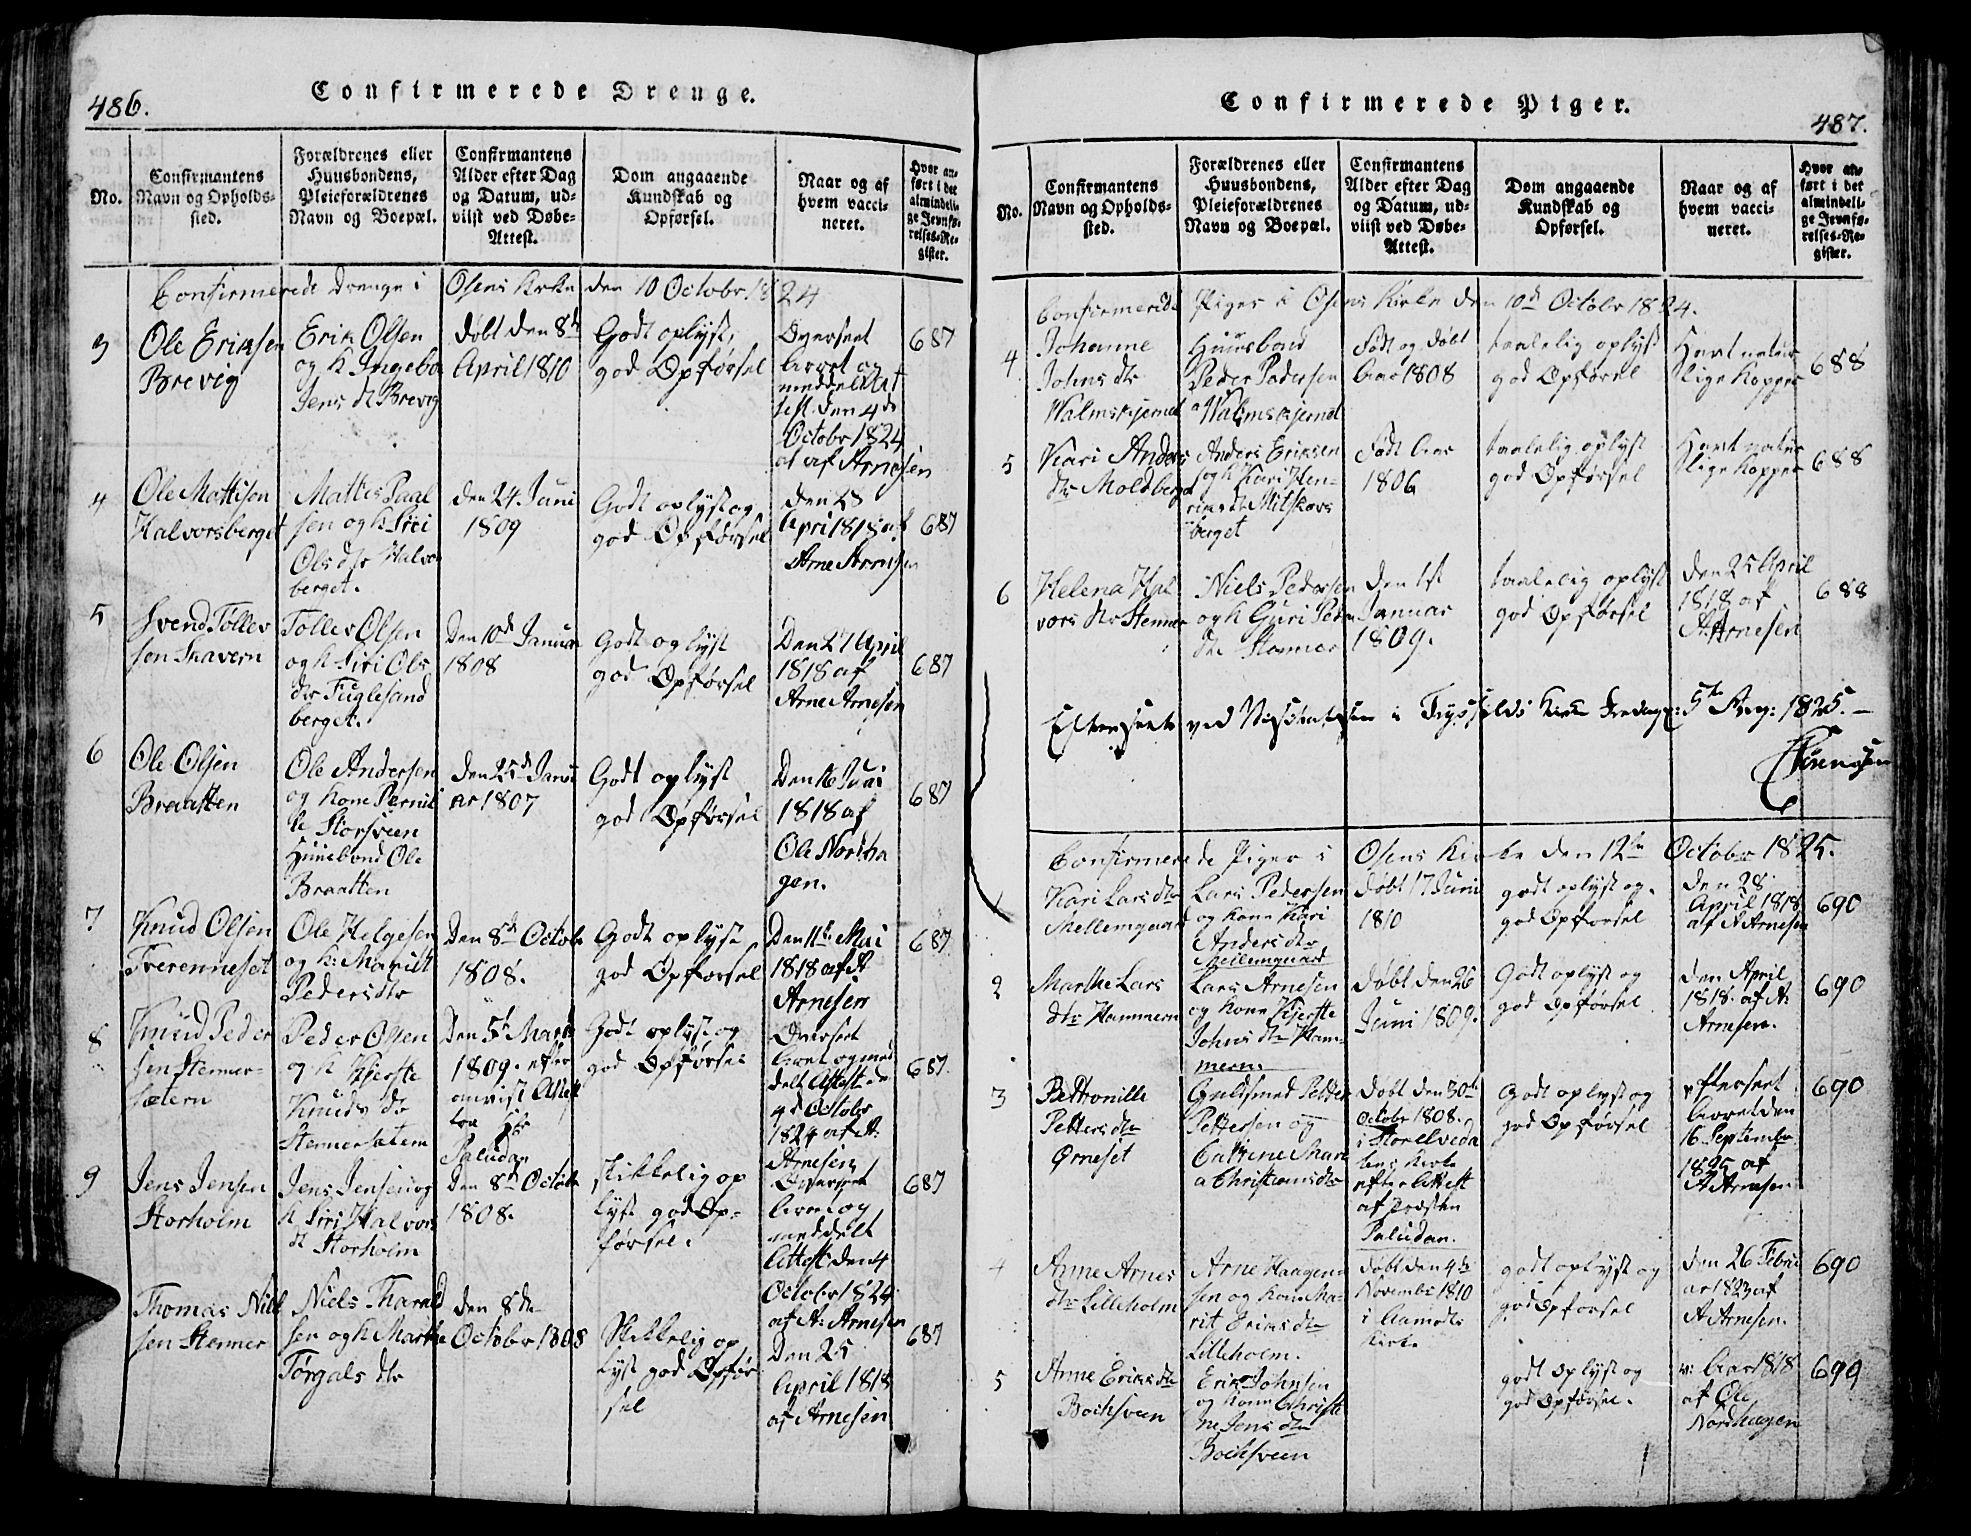 486.
Confirmerede Drenge.
No.
Confirmantens
Navn og Opholds-
sted.
Forældrenes eller
Huusbondens,
Pleieforældrenes
Navn og Boepæl.
Confirmantens
Alder efter Dag
og Datum, ud-
viist ved Døbe-
Attest.
Dom angaaende
Kundskab og
Opførsel.
Naar og af
hvem vacci-
neret.
Hvor an-
ført i det
almindeli-
ge Jevnfø-
relses-Re-
gister.
Confirmerede Drenge i Osens Kirke den 10 Octobr 1824
3
Ole Eriksen
Brevig
Erik Olsen
og K Ingebo
Jens dt Brevig
døbt den 8de
April 1810
Godt oplyst,
god Opførsel
Overseet
Arret og
meddelt At
test den 4de
Octobr 1824
at af Arnesen
687
4
Ole Mattison
Halvorsberget
Mattis Paal
sen og K Siri
Olsdtr Halvors
berget.
den 24 Juni
1809
Godt oplyst og
god Opførsel
den 28
April 1818 af
Arne Arnesen
687
5
Svend Tollev
sen Skavern
Tollev Olsen
og K Siri Ols
dtr Fuglesand
berget.
Den 10de Januar
1808
Godt oplyst
god Opførsel
Den 27 April
1818 af
Arne Arnesen
687
6
Ole Olsen
Braatten
Ole Andersen
og Kone Pernil
le Storsveen
Huusbond Ole
Braatten
Den 25de Janu
ar 1807
Godt oplyst
god Opførsel
Den 16 Juni
1818 af
Ole Nordha
gen.
687
7
Knud Olsen
Tverenneset
Ole Helgesen
og K: Maritt
Pedersdtr
Den 8de Octobr
1808.
Godt oplyst
god Opførsel
Den 11te Mai
1818 af A
Arnesen
687
8
Knud Peder
sen Stener-
sætern
Peder Olsen
og K Kjerste
Knuds dr
Stenersætern
Den 5t Marts
1809. efter
anvist Attest
fra Hr
Paludan
Godt oplyst og
god Opførsel
Overseet
Arret og med
delt Attest den
4de Octobr
1824 af A:
Arnesen
687.
9
Jens Jensen
Storholm
Jens Jensen og
K Siri Halvors
dt Storholm
Den 8de Octobr
1808.
skikkelig op
lyst god Op-
førsel.
Overseet
Arret og
meddelt
Attest den 4
Octobr 1824
af A: Arnesen
687
Thomas Niel
sen Stener
Niels Tharald
sen og K Marthe
Torgals dtr
den 8de
October 1808
Skikkelig op
lyst god Opfør
sel
Den 25
April 1818
af Arnesen
687
Confirmerede Piger.
487.
No.
Confirmantens
Navn og Opholds-
sted.
Forældrenes eller
Huusbondens,
Pleieforældrenes
Navn og Boepæl.
Confirmantens
Alder efter Dag
og Datum, ud-
viist ved Døbe-
Attest.
Dom angaaende
Kundskab og
Opførsel.
Naar og af
hvem vacci-
neret.
Hvor an-
ført i det
almindeli-
ge Jevnfø-
relses-Re-
gister.
Confirmerede Piger i Osens Kirke den 10de Octobr 1824.
4
Johanne
Johns dtr
Malmskjernet
Huusbond
Peder Pedersen
Malmskjernet
Født og døbt
Aar 1808
taalelig oplyst
god Opførsel
Havt natur
lige Kopper
688
5
Kari Anders
dtr Moldberget
Anders Eriksen
og K Kari Hen-
riks dt Mitskovs
berget
Født Aar
1806
taalelig oplyst
god Opførsel
Havt natur
lige Kopper
688
6
Helena Hal
vors dtr Stener
Niels Pedersen
og K Guri Peder
dtr Stener
Den 1st
Januar
1809.
taalelig oplyst
god Opførsel
Den 25 April
1818 af
A: Arnesen
688
Efterseet ved Visitatsen i Trysild Kirke Fredag: 5te Aug: 1825. –
Confirmerede Piger i Osens Kirke den 12te Octobr 1825.
1
Kari Lars dtr
Mellemgaard
Lars Pedersen
og Kone Kari
Anders dtr
Mellemgaard
døbt 17 Juni
1810
godt oplyst og
god Opførsel
Den 28
April 1818
af A Arnesen
690
2
Marthe Lars
dtr Hammern
Lars Arnesen
og Kone Kjerste
Johns dtr Ham-
mern
døbt den 26
Juni 1809.
Godt oplyst og
god Opførsel
den April
1818. af A:
Arnesen.
690
3
Bettronille
Petters dtr
Ørneset
Guldsmed Petter
Pettersen og
Catrine Mari
a Christians dtr
døbt den 30te
October 1808.
i Storelveda
lens Kirke
efter Attest
af Præsten
Paludan.
Godt oplyst og
god Opførsel
efterseet
Arret den
16 Septembr
1825 af
A Arnesen
690
4
Anne Arnes
dtr Lilleholm
Arne Haagen
sen og Kone Ma-
rit Eriks dtr
Lilleholm.
døbt den 4de
Novembr 1810
i Aamodts
Kirke
godt oplyst og
god Opførsel
den 26 Febru
ar 1823 af
A Arnesen.
690
5
Anne Eriks dtr
Bochsveen
Erik Johnsen
og Kone Christi
ne Jens dtr
Bochsveen
godt oplyst og
god Opførsel.
v: Aar 1818
af Ole
Nordhagen
699